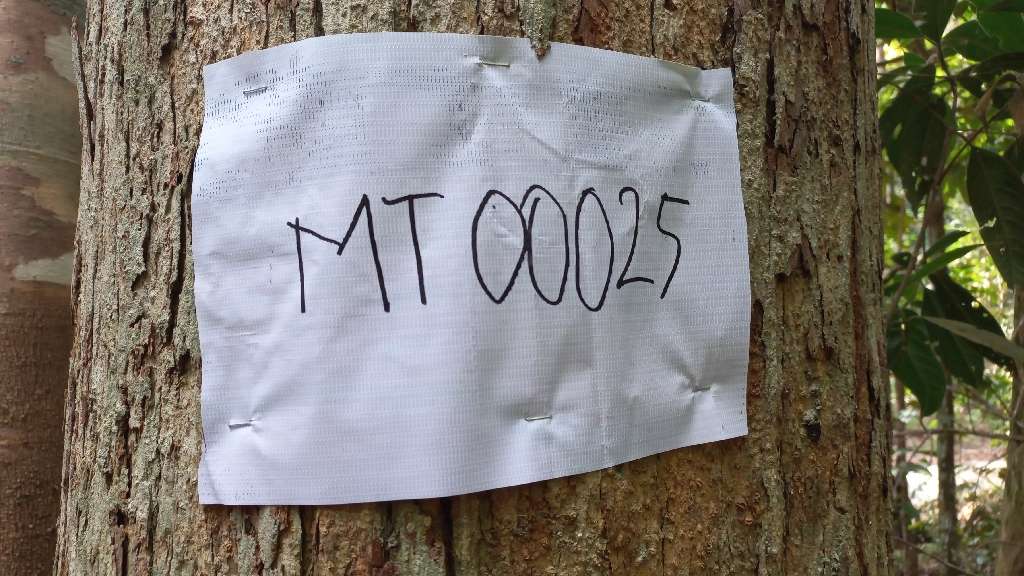 MT 00025